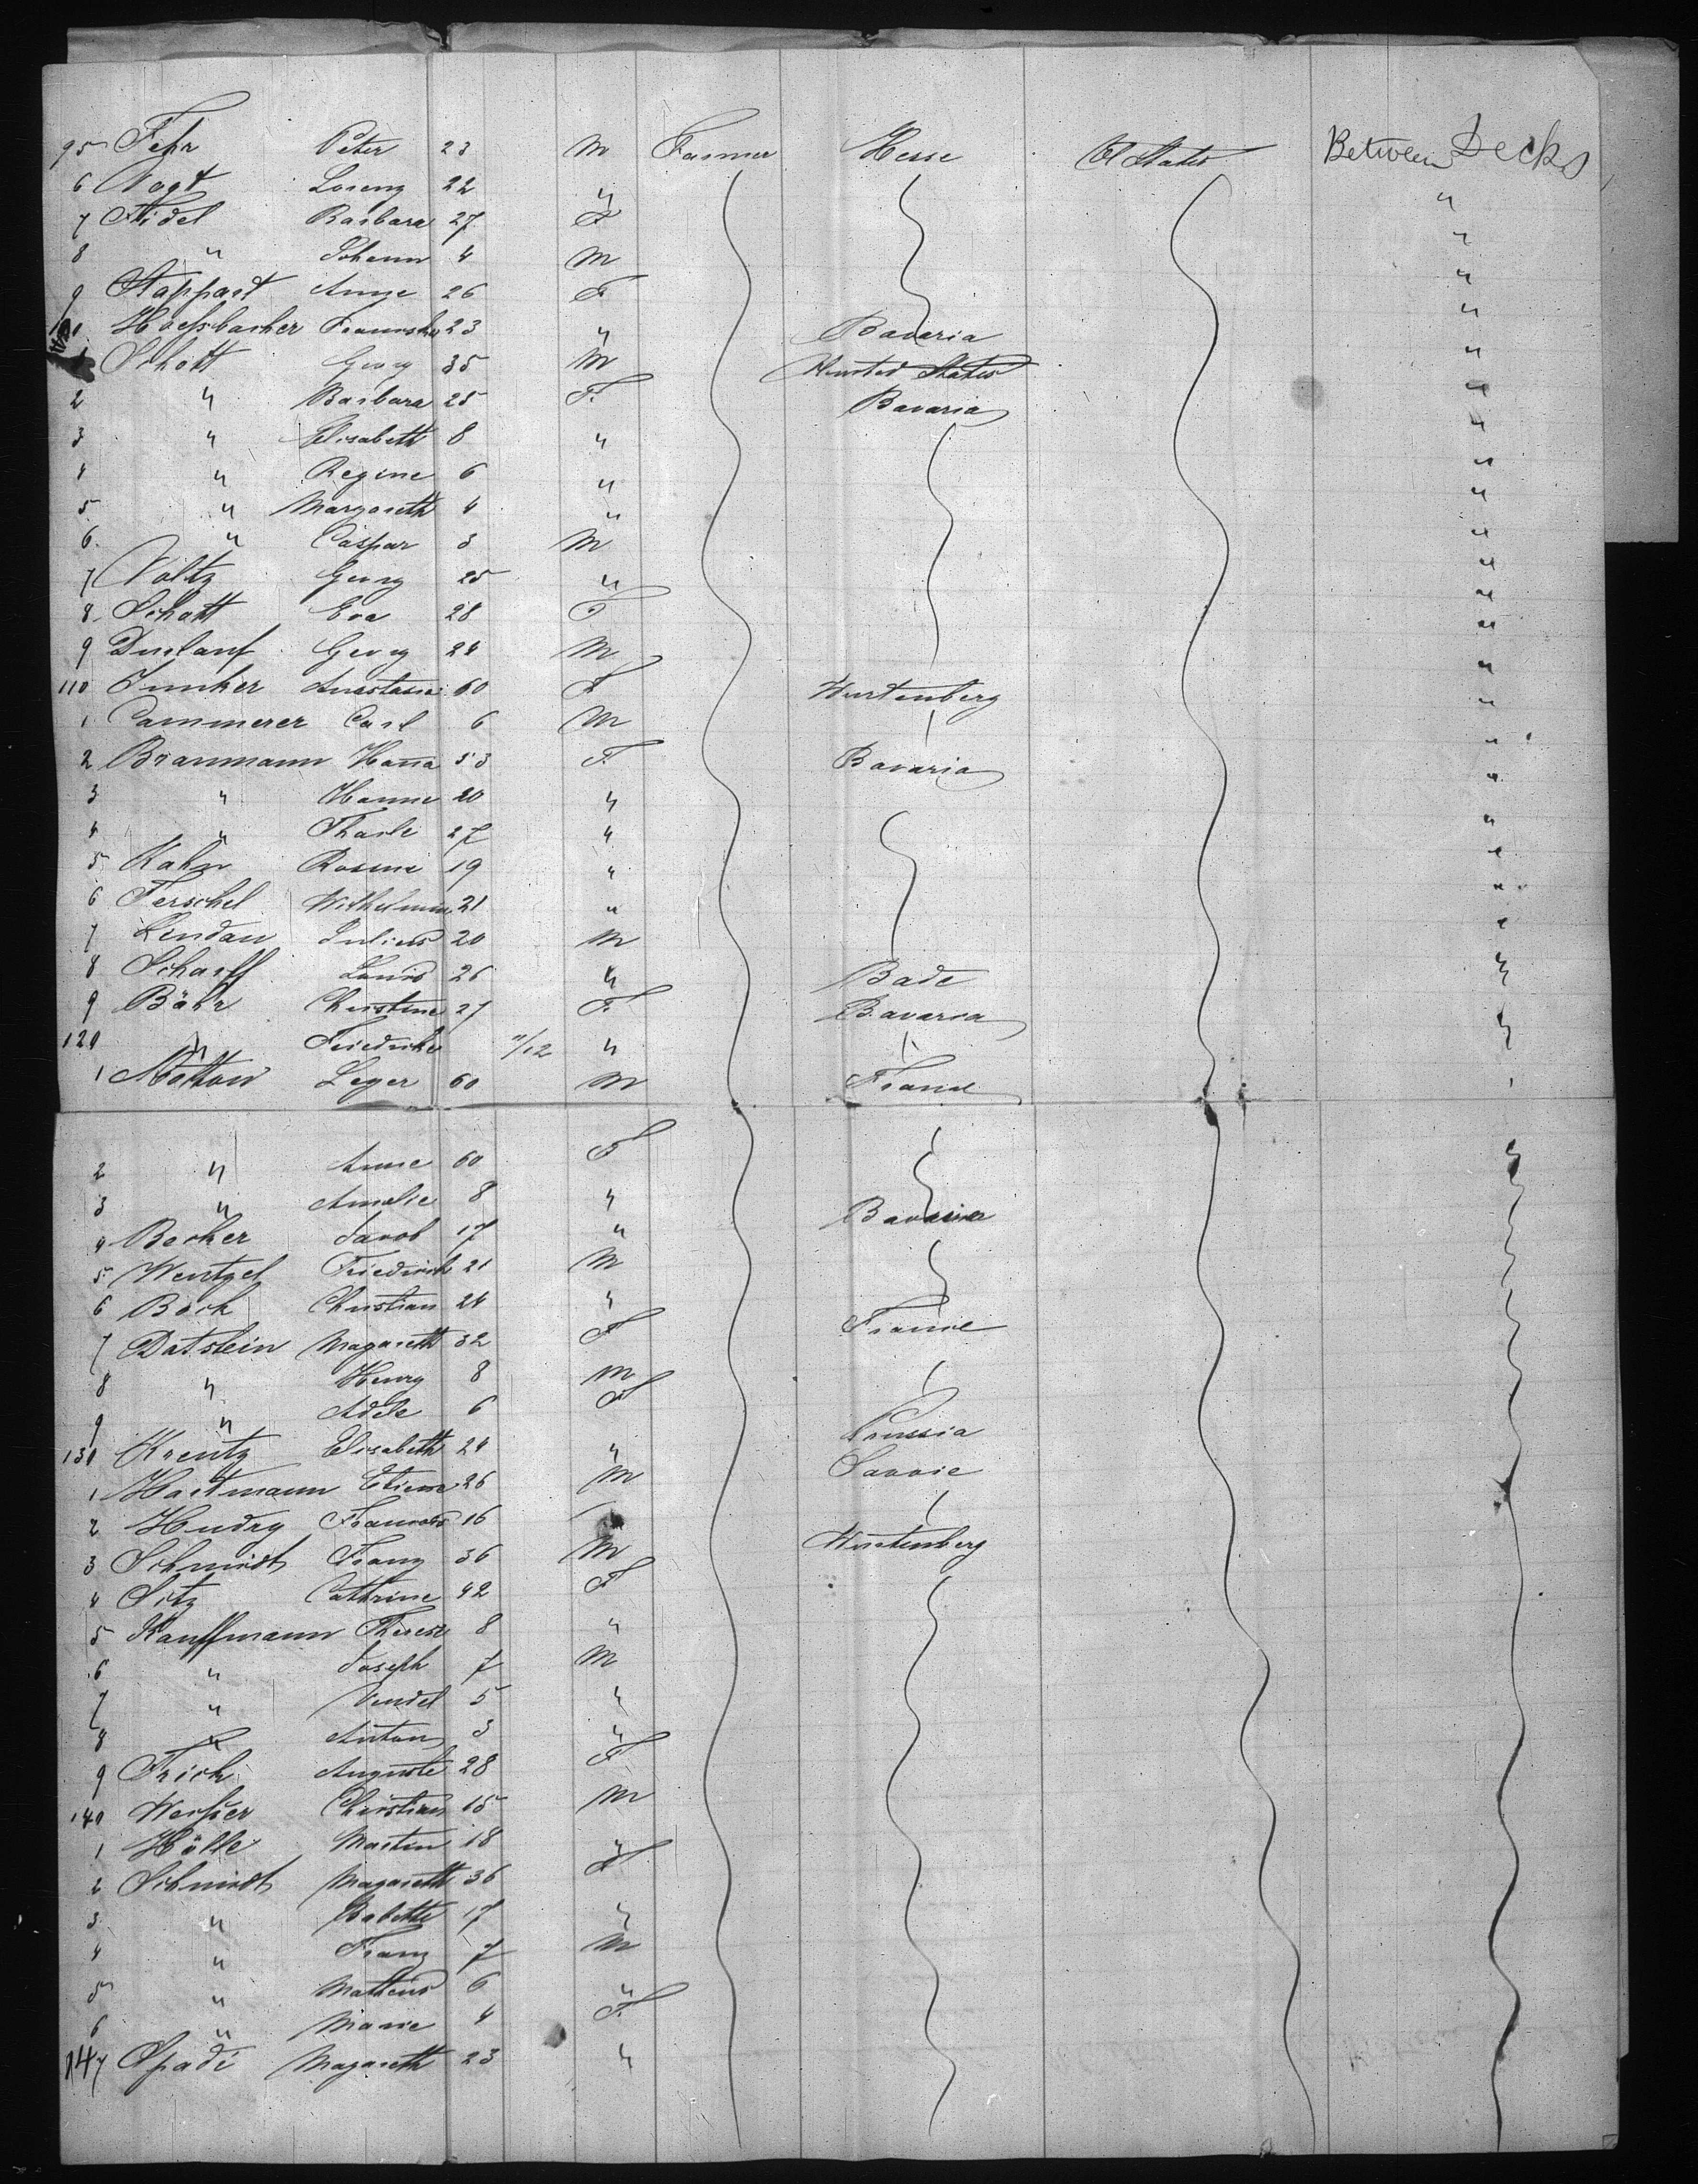 95 Fehr Peter 23 M Farmer Hesse U States Between Decks
6 Vogt Lorenz 22 " "
7 Fidel Barbara 27 F "
8 " Johann 4 M "
9 Stappart Anna 26 F "
Hoefsbacher Franziska 23 " Bavaria "
1 Schott Georg 35 M United States "
2 " Barbara 25 F. Bavaria "
3 " Elisabeth 8 " "
4 " Regine 6 " "
5 " Margareth 4 " "
6. " Caspar 3 M "
7 Voltz Georg 25 " "
8. Schott Eva 28 F "
9 Durlauf Georg 24 M "
110 Junker Anastasia 60 F Wurtenberg "
1 Cammerer Carl 6 M "
2 Braumann Hana 53 F. Bavaria "
3 " Hanne 20 " "
4 " 27 " "
5 Kahn Rosine 19 " "
6 Ferschel Wilhelmine 21 " "
7 Lindau Julius 20 M "
8 Scharff Louis 26 " Bade "
9 Bähr Christine 27 F. Bavaria
120 " Friedrike 11/12 " "
1 Motton Leger 60 M France
2 " Anne 60 F "
3 " Amelie 8 "
4 Becker Jacob 17 " Bavaria
5 Wentzel Friedrich 21 M
6 Bock Christian 24 "
7 Datstein Magareth 32 F France
8 " Henry 8 M
9 " Adele 6 F
130 Kreutz Elisabeth 24 " Prussia
1 Hartmann Etienne 26 M Savoie
2 Hudry Francois 16
3 Schmidt Franz 36 M Wurtenberg
4 Sitz Cathrine 42 F
5 Kauffmann Therese 8 "
6 " Joseph 7 M
7 " Vendel 5 "
8 " Anton 3 "
9 Frick Auguste 28 F
140 Weisser Christian 15 M
1 Hölle Martin 18 "
2 Schmidt Magareth 36 F
3 " Babette 17 "
4 " Franz 7 M
5 " Matheus 6 "
6 " Marie 4 F.
147 Spadi Magareth 23 "